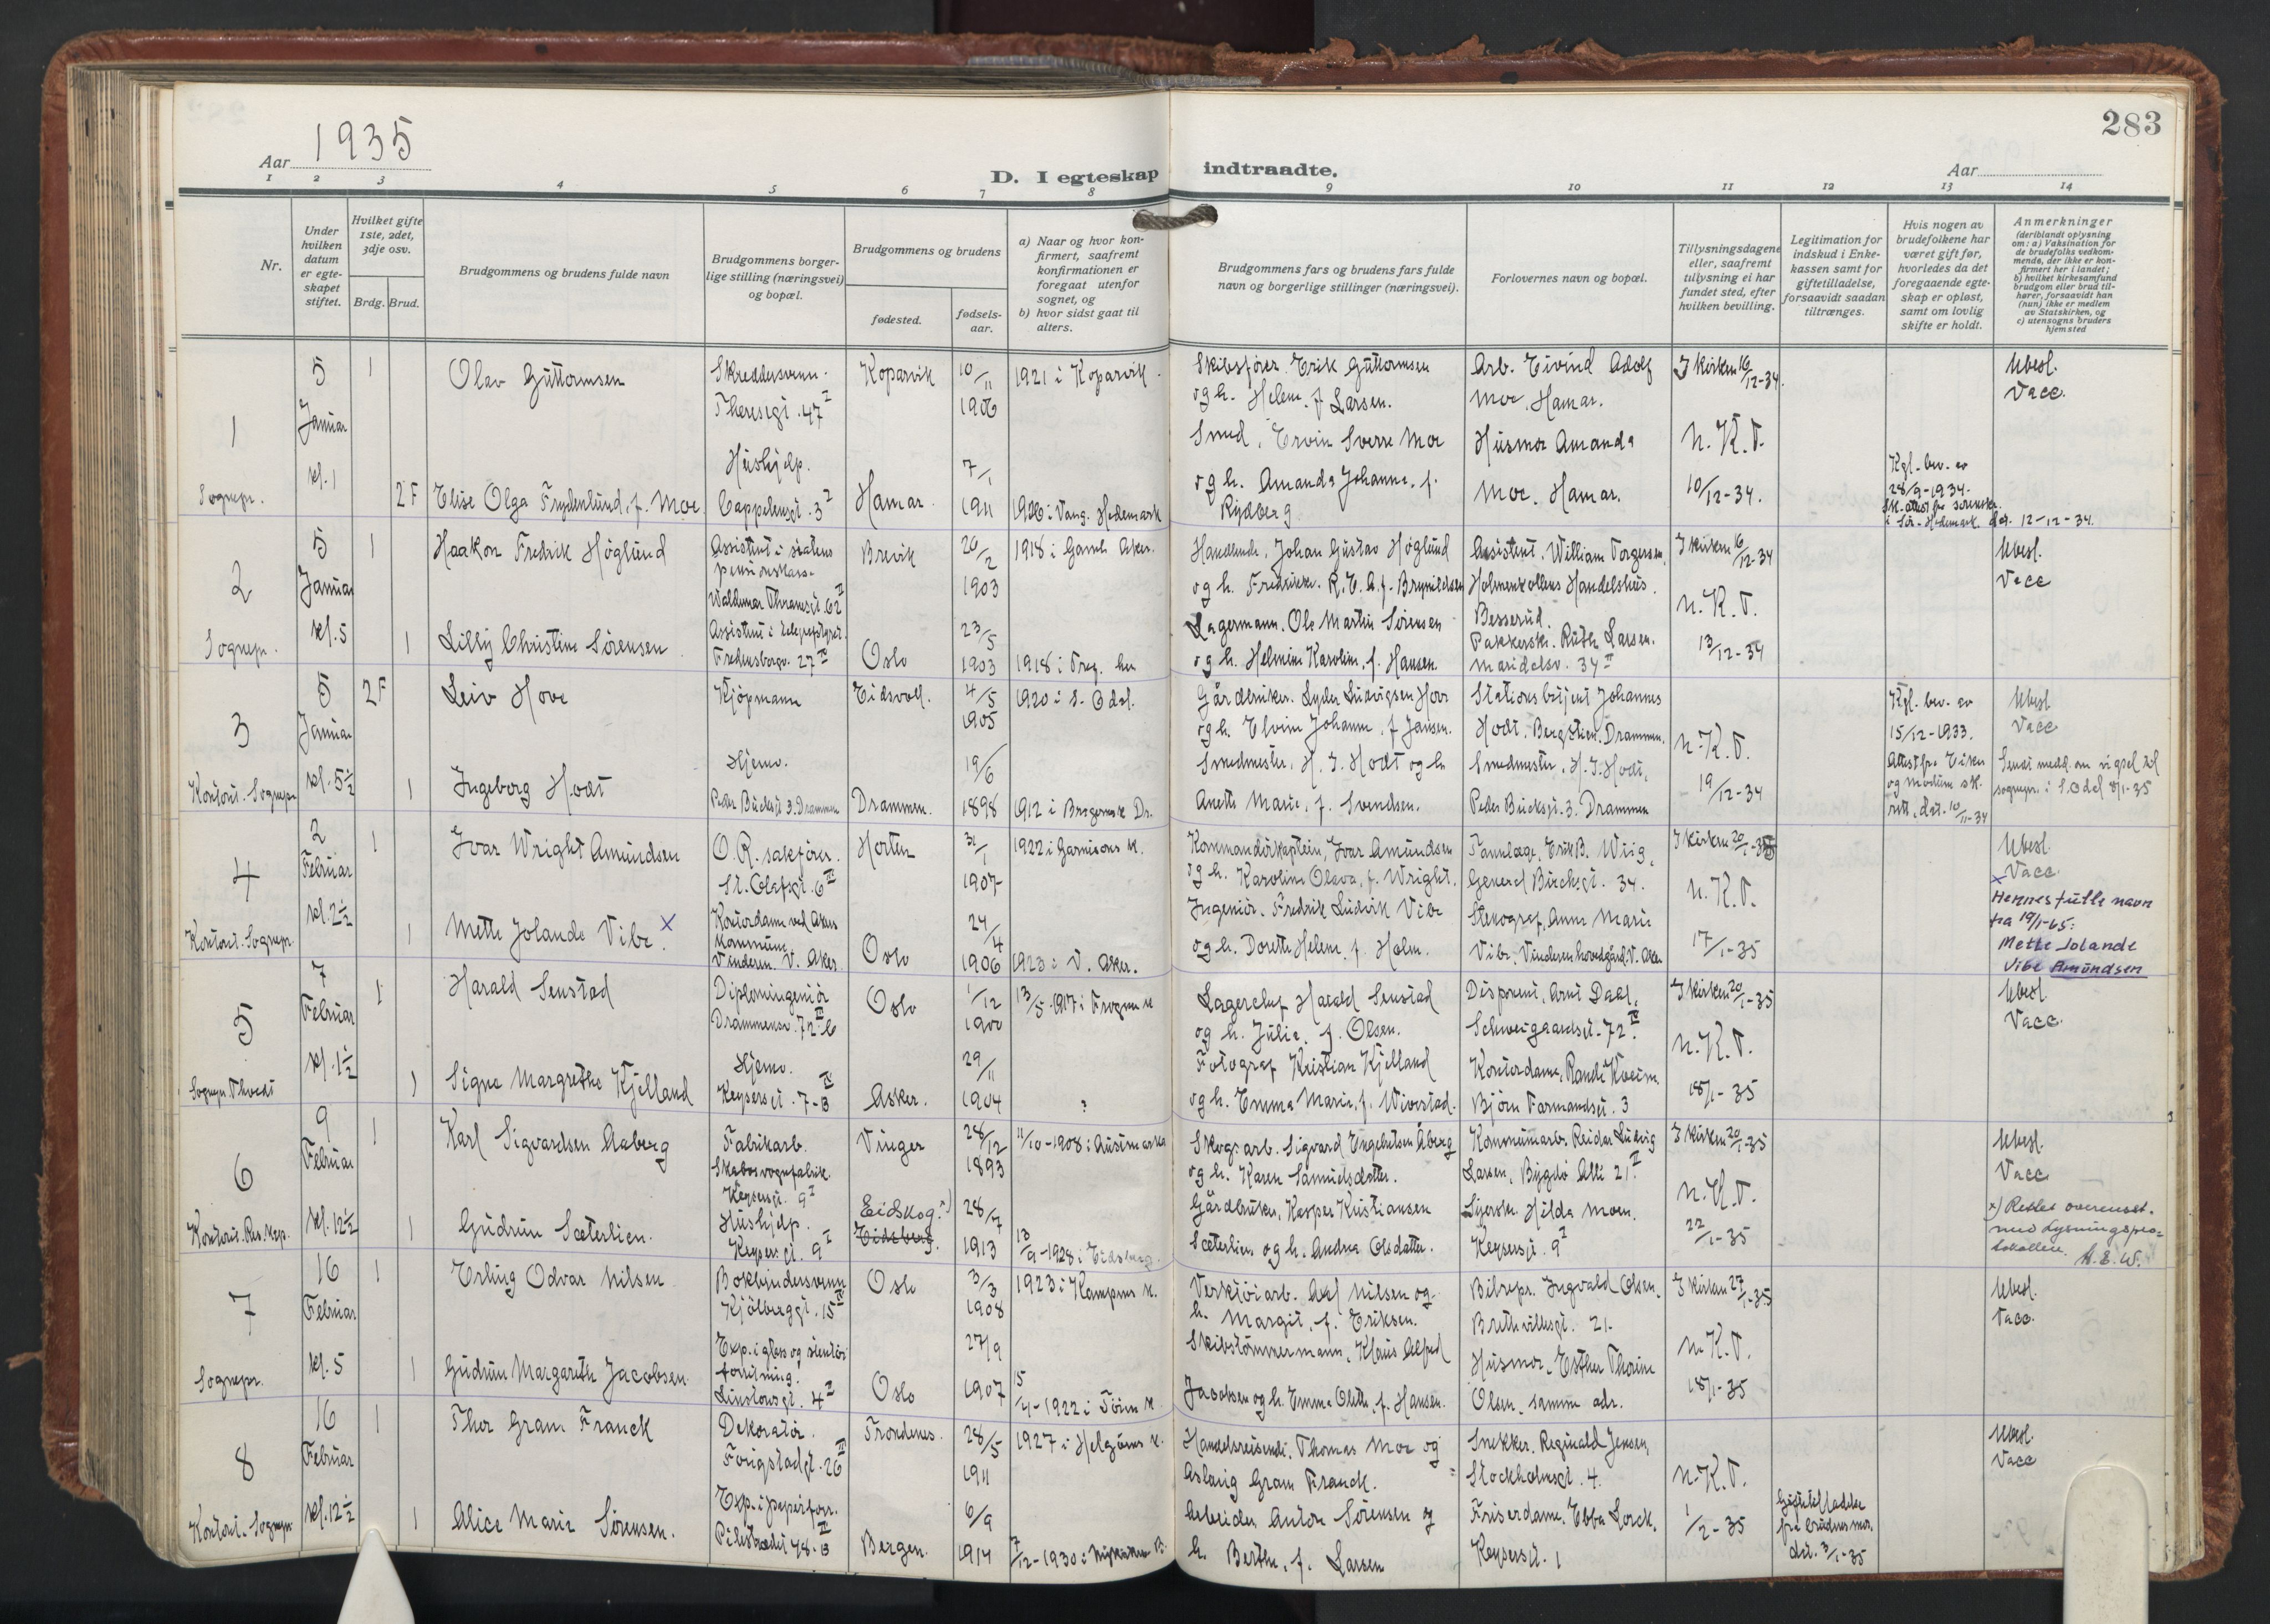 283
Aar 1935
D. I egteskap indtraadte.
Aar
1 2 3 4 5 6 7 8 9 10 11 12 13 14
Nr.
Under hvilken datum er egteskapet stiftet.
Hvilket gifte 1ste, 2det, 3dje osv.
Brdg. Brud.
Brudgommens og brudens fulde navn
Brudgommens borgerlige stilling (næringsvei) og bopæl.
Brudgommens og brudens
fødested.
fødselsaar.
a) Naar og hvor konfirmert, saafremt konfirmationen er foregaat utenfor sognet, og
b) hvor sidst gaat til alters.
Brudgommens fars og brudens fars fulde navn og borgerlige stillinger (næringsvei).
Forlovernes navn og bopæl.
Tillysningsdagene eller, saafremt tillysning ei har fundet sted, efter hvilken bevilling.
Legitimation for indskud i Enkekassen samt for giftetilladelse, forsaavidt saadan tiltrænges.
Hvis nogen av brudefolkene har været gift før, hvorledes da det foregaaende egteskap er opløst, samt om lovlig skifte er holdt.
Anmerkninger
(deriblandt oplysning om: a) Vaksination for de brudefolks vedkommende, der ikke er konfirmert her i landet; b) hvilket kirkesamfund brudgom eller brud tilhører, forsaavidt han (hun) ikke er medlem av Statskirken, og c) utensogns bruders hjemsted
1
5 Januar kl. 1
Sognepr.
1
Olav Guttormsen
Skreddersvenn.
Theresgt. 47 I
Koparvik
10/11 1906
1921 i Koparvik.
Skibsfører Erik Guttormsen
og h. Helene f. Larsen.
Arb. Eivind Adolf
Moe, Hamar.
I kirken 16/12-34.
Ubesl.
Vacc.
2F
Elise Olga Frydenlund, f. Moe
Hushjelp.
Cappelensgt. 3 I
Hamar
7/1 1911
1926 i Vang. Hedemark
Smed, Ervin Sverre Moe
og h. Amanda Johanne, f.
Rydberg
Husmor Amanda
Moe, Hamar.
n. K. T.
10/12-34.
Kgl. bev. av
28/9-1934.
Sk. attest fra sorenskr.
i Sør-Hedemark. dat. 12-12-34.
2
5 Januar kl. 5
Sognepr.
1
Haakon Fredrik Høglund
Assistent i statens
pensionskasse
Waldemar Thranesgt. 62 II
Brevik
20/2 1903
1918 i Gamle Aker.
Handlende, Johan Gustav Høglund
og h. Fredrikke. R. E. A. f. Brynildsen
Assistent. William Torgersen,
Holmenkollens Handelshus.
Besserud.
I kirken 16/12-34
Ubesl.
Vacc
1
Lilly Christine Sørensen
Assistent i telegrafstyret.
Fredensborgv. 27 IV
Oslo
23/5 1903
1918 i Tref. her
Lagermann. Ole Martin Sørensen
og h. Helmine Karoline, f. Hansen.
Pakkersk. Ruth Larsen.
Maridalsv. 34 II
n. K. T.
13/12-34
3
5 Januar kl. 5½
Kontoret. Sognepr.
2F
Leiv Hove
Kjøpmann
Eidsvoll.
4/5 1905
1920 i S. Odal.
Gårdbruker. Lyder Ludvigsen Hove
og h. Elvine Johanne, f. Jansen.
Stationsbetjent Johannes
Hodt, Bergstien, Drammen.
n. K. T.
19/12-34
Kgl. bev. av
15/12-1933.
Attest fra Eiker
og Modum sk.
rett, dat. 10/11-34
Ubesl
Vacc
Sendt medd. om vigsel til
sognepr. i S. Odal 8/1-35
1
Ingeborg Hodt
Hjemv.
Peder Bucksgt 3. Drammen
Drammen.
19/6 1898
1912 i Bragernes k. Dr.
Smedmester, H. J. Hodt og h.
Anette Marie, f. Svendsen.
Smedmester, H. J. Hodt,
Peder Bucksgt. 3. Drammen
4
2 Februar kl. 2½
Kontoret. Sognepr.
1
Ivar Wright Amundsen
O. R. sakfører.
St. Olafsgt. 6 III
Horten
31/1 1907
1922 i Garnisons k.
Kommandørkaptein, Ivar Amundsen
og h. Karoline Olava, f. Wright.
Tannlæge, Erik B. Wiig,
General Birchsgt. 34.
I kirken 20/1-35
n. K. T.
17/1-35
Ubesl.
Vacc
x
Hennes fulle navn
fra 19/1-65:
Mette Iolande
Vibe Amundsen
1
Mette Jolande Vibe. x
Kontordame ved Akers
kommune
Vinderen. V. Aker.
Oslo
24/4 1906
1923 i V. Aker.
Ingeniør. Fredrik Ludvik Vibe
og h. Dorette Helene, f. Holm.
Stenograf, Anne Marie
Vibe, Vinderen hovedgård. V. Aker
5
7 Februar kl. 1½
Sognepr. Thvedt
1
Harald Senstad
Diplomingeniør
Drammensv. 72 b
Oslo
1/12 1900
13/5-1917 i Frogner k
Lagerchef Harald Senstad
og h. Julie, f. Olsen.
Disponent, Arne Dahl,
Schweigaardsgt. 72 IV.
I kirken 20/1-35
n. K. T.
18/1-35
Ubesl
Vacc.
1
Signe Margrethe Kjelland
Hjemv.
Keysersgt. 7-B
Asker.
29/11 1904
?
Fotograf Kristian Kjelland
og h. Emma Marie, f. Wivestad.
Kontordame, Randi Kveim.
Bjørn Farmandsgt. 3
6
9 Februar kl. 12½
Kontoret. Res. kap.
1
Karl Sigvardsen Aaberg
Fabrikarb.
Skabos vognfabrik.
Keysersgt. 9 I
Vinger
28/12 1893
11/10-1908 i Austmarka
Skogsarb. Sigvard Engebretsen Åberg
og h. Karen Samuelsdatter.
Kommunearb. Reidar Ludvig
Larsen, Bygdø Alle 21 II.
I kirken 20/1-35
n. K. T.
22/1-35
Ubesl.
Vacc
x) Rettet overenst.
med lysningspro-
tokollen. H. E. W.
1
Gudrun Sæterlien.
Hushjelp.
Keysersgt. 9 I
Eidskog. x)
Eidsberg.
28/7 1913
13/9-1928 i Eidsberg.
Gårdbruker, Kasper Kristiansen
Sæterlien og h. Andrea Olsdatter.
Syersk. Hilda Moen.
Keysersgt. 9 I
7
16 Februar kl. 5
Sognepr.
1
Erling Odvar Nilsen
Bokbindersvenn
Kjølberggt. 15 III
Oslo
3/3 1908
1923 i Kampens k.
Verktøiarb. Axel Nilsen og
h. Margit, f. Eriksen.
Bilrepr. Ingvald Olsen,
Brettevillesgt. 21.
I kirken 27/1-35
n. K. T.
18/1-35
Ubesl.
Vacc.
1
Gudrun Margarethe Jacobsen
Exp. i glass og stentøi
forretning.
Linstowsgt. 4 I
Oslo
27/9 1907
15/4-1922 i Tøien k.
Skibstømmermann, Klaus Alfred
Jacobsen og h. Emma Olette, f. Hansen.
Husmor, Esther Thorine
Olsen, samme adr.
8
16 Februar kl. 12½
Kontoret. Sognepr
1
Thor Gram Franck
Dekoratør.
Fougstadgt. 26 II
Trondenes.
28/5 1911
1927 i Helgøens k.
Handelsreisende. Thomas Moe og
Aslaug Gram Franck.
Snekker. Reginald Jensen,
Stockholmsgt. 4.
n. K. T.
1/2-35
Ubesl.
Vacc
1
Alice Marie Sørensen.
Exp. i papirforr.
Pilestrædet 48-B II
Bergen.
6/9 1914
7/12-1930 i Nykirken B.
Arbeider Anton Sørensen og
h. Berthe, f. Larsen
Friserdame. Ebba Lorck.
Keysersgt. 1
Giftetilladelse
fra brudens mor.
dat. 3/1-35